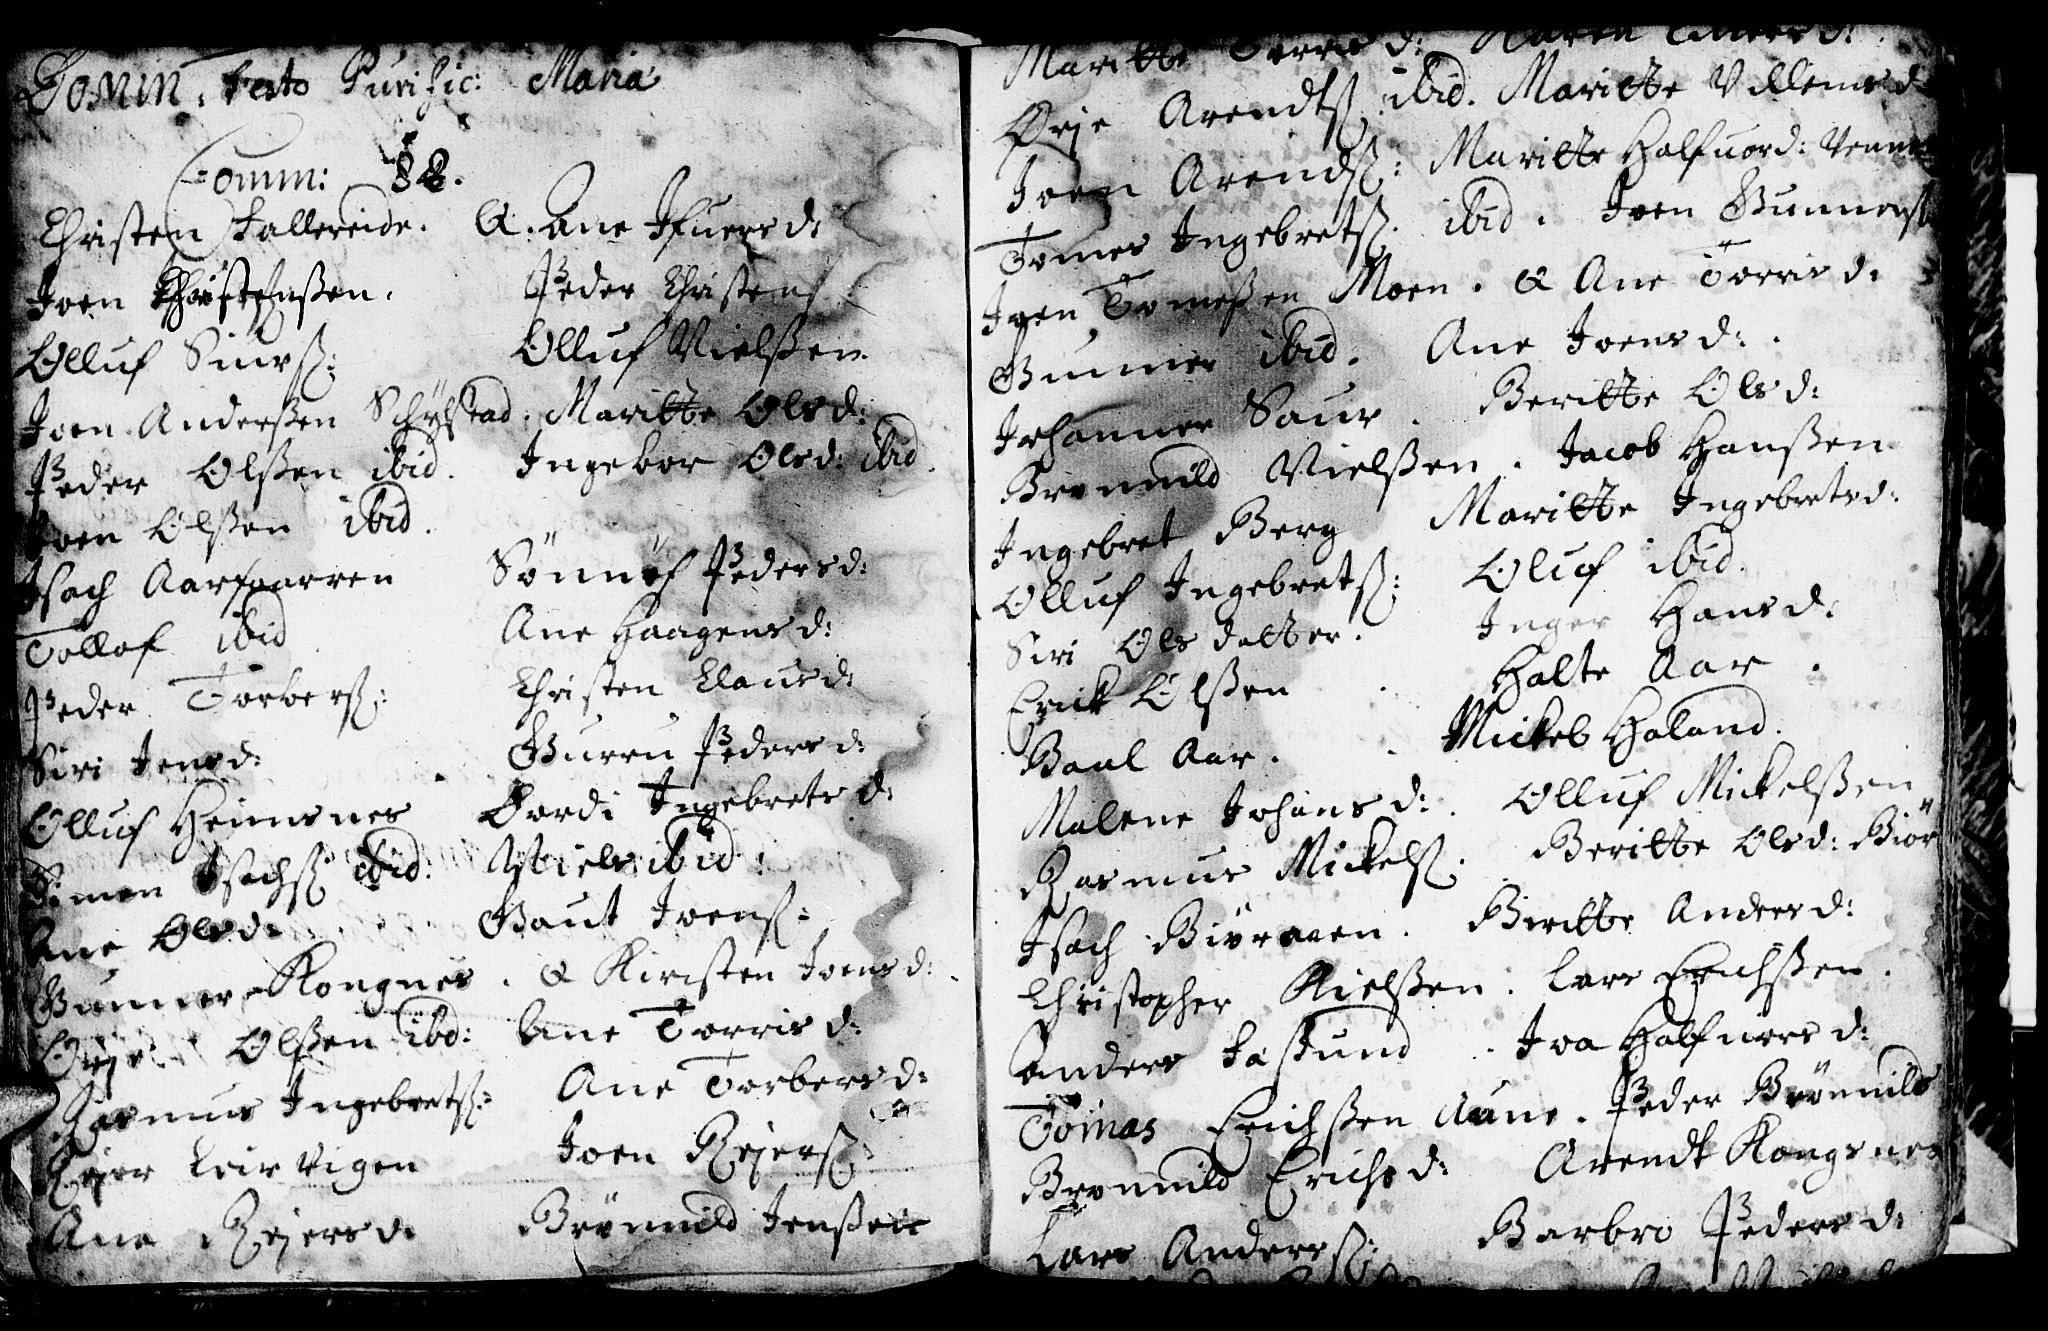 Domin. Festo Purific: Maria
Comm: 82.
Christen Fallereide. & Ane Ifuersd:
Joen Christensen. Peder Christens
Olluf Siurß: Olluf Nielßen
Joen Anderßen Schÿstad. Maritte Olsd:
Peder Olßen ibid. Ingebor Olsd: ibid.
Joen Olßen ibid.
Isach Aarsaarren Sönnöf Pedersd:
Tollof ibid Ane Haagensd:
Peder Torberß: Christen Clausd:
Siri Jensd: Gurru Pedersd:
Olluf Heimsnes Gordi Ingebretsd:
Simen Isachß ibid: Niels ibid:
Ane Olsd: Gaut Joenß:
Gunner Kongnes. & Kirsten Joensd:
Örje Olßen ibd: Ane Torrisd:
Rasmus Ingebretß: Ane Torbersd:
Rejer Leirvigen Joen Rejerß:
Ane Rejersd: Brönnild Jenßen
Maritte Torrisd: Karen
Örje Arendtß ibid. Maritte Villemsd:
Joen Arendß: Maritte Halfuord:
Tomes Ingebretß. ibid. Joen Gunnerß
Joen Tomeßen Moen. & Ane Torrisd:
Gunner ibid. Ane Joensd:
Johannes Saur. Beritte Olsd:
Bronnild Nielßen. Jacob Hanßen
Ingebret Berg Maritte Ingebretsd:
Olluf Ingebretß: Oluf ibid.
Siri Olsdatter. Inger Hansd:
Erick Olßen Halte Aar.
Baul Aar. Mickel Haland.
Malene Johansd: Olluf Mickelßen
Rasmus Mickelß. Beritte Olsd: Biör
Isach Biöraaen. Beritte Andersd:
Christopher Nielßen. Lars Erichßen.
Anders Fasund. Iva Halfuorsd:
Tomas Erichßen Aune. Peder Brönnilds
Bronnild Erichsd: Arendt Kongsnes
Lars Anderß: Barbro Pedersd: